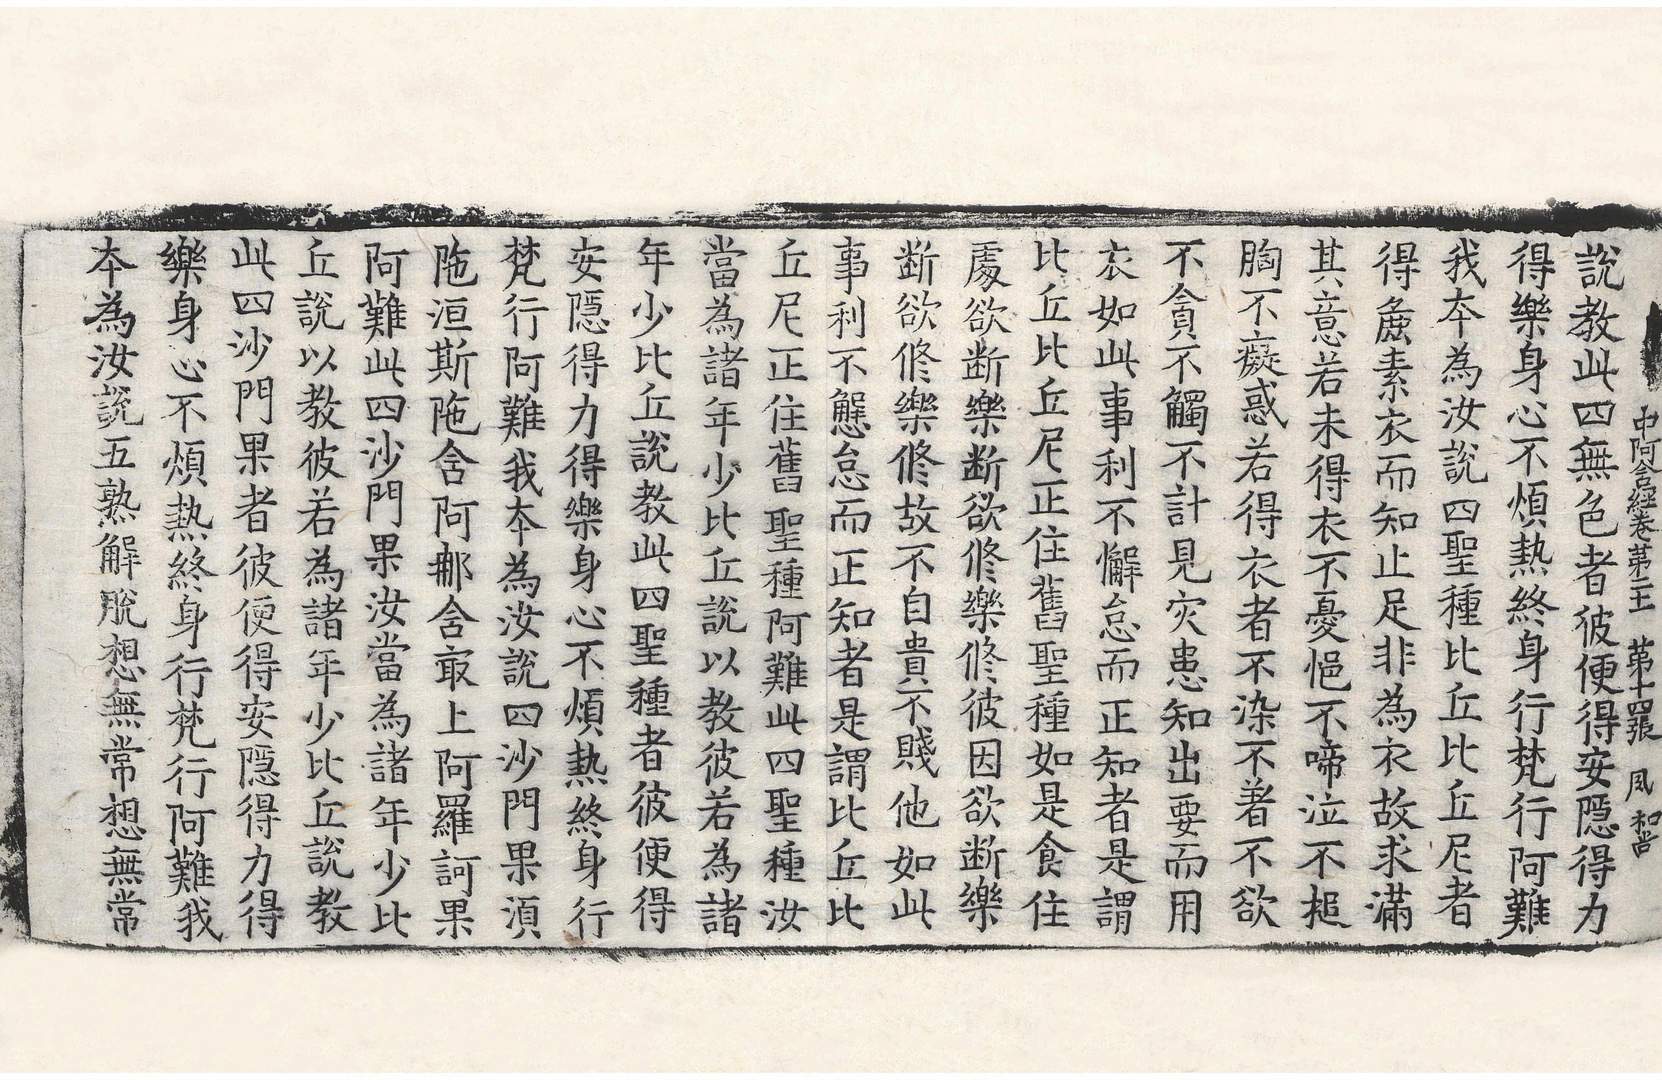 中阿含經卷第二十一　第十四張　夙　和尚
說教此四無色者彼便得安隱得力
得樂身心不煩熱終身行梵行阿難
我夲為汝說四聖種比丘比丘尼者
得麁素衣而知止足非為衣故求滿
其意若未得衣不憂悒不啼泣不搥
胸不癡惑若得衣者不染不著不欲
不貪不觸不計見灾患知出要而用
衣如此事利不懈怠而正知者是謂
比丘比丘尼正住舊聖種如是食住
處欲断樂断欲修樂修彼因欲断樂
断欲修樂修故不自貴不賤他如此
事利不懈怠而正知者是謂比丘比
丘尼正住舊聖種阿難此四聖種汝
當為諸年少比丘說以教彼若為諸
年少比丘說教此四聖種者彼便得
安隱得力得樂身心不煩熱終身行
梵行阿難我夲為汝說四沙門果湏
陁洹斯陁含阿那含冣上阿羅訶果
阿難此四沙門果汝當為諸年少比
丘說以教彼若為諸年少比丘說教
此四沙門果者彼便得安隱得力得
樂身心不煩熱終身行梵行阿難我
夲為汝說五熟解脫想無常想無常